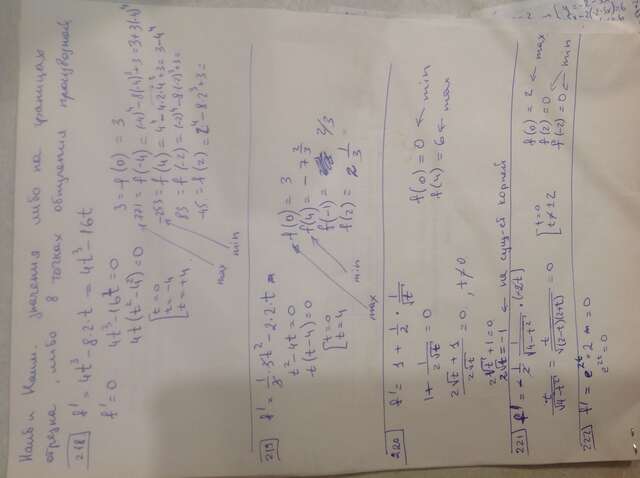 Наиб и Наим. значения либо на границах
отрезка, либо в точках обнуления производной
218 f' = 4t³ - 8·2·t = 4t³ - 16t
f' = 0 4t³ - 16t = 0
4t(t² - 4) = 0
t = 0
t = -4
t = +4
3 = f(0) = 3
f(-4) = (-4)⁴ - 8(-4)² + 3 =
-253 = f(4) = 4⁴ - 4·2·4³ + 3 = 3 - 4⁴
83 = f(-2) = (-2)⁴ - 8(-2)³ + 3 =
-45 = f(2) = 2⁴ - 8·2³ + 3 =
max
min
219 f' = 1/3·3t² - 2·2·t
t² - 4t = 0
t(t - 4) = 0
t = 0
t = 4
f(0) = 3
f(4) = -7 2/3
f(-1) = 2/3
f(2) =
max
min
220 f' = 1 + 1/2 · 1/√t
1 + 1/2√t = 0
2√t + 1/2√t = 0, t≠0
2√t + 1 = 0
2√t = -1 ← не сущ-ей корней
f(0) = 0 ← min
f(4) = 6 ← max
221 f' = 1/2 · 1/√(4-t²) · (-2t)
t/√(4-t²) = t/√(2-t)(2+t) = 0
t = 0
t ≠ ±2
f(0) = 2 ← max
f(2) = 0
f(-2) = 0 ← min
222 f' = e²ᵗ · 2 = 0
e²ᵗ = 0